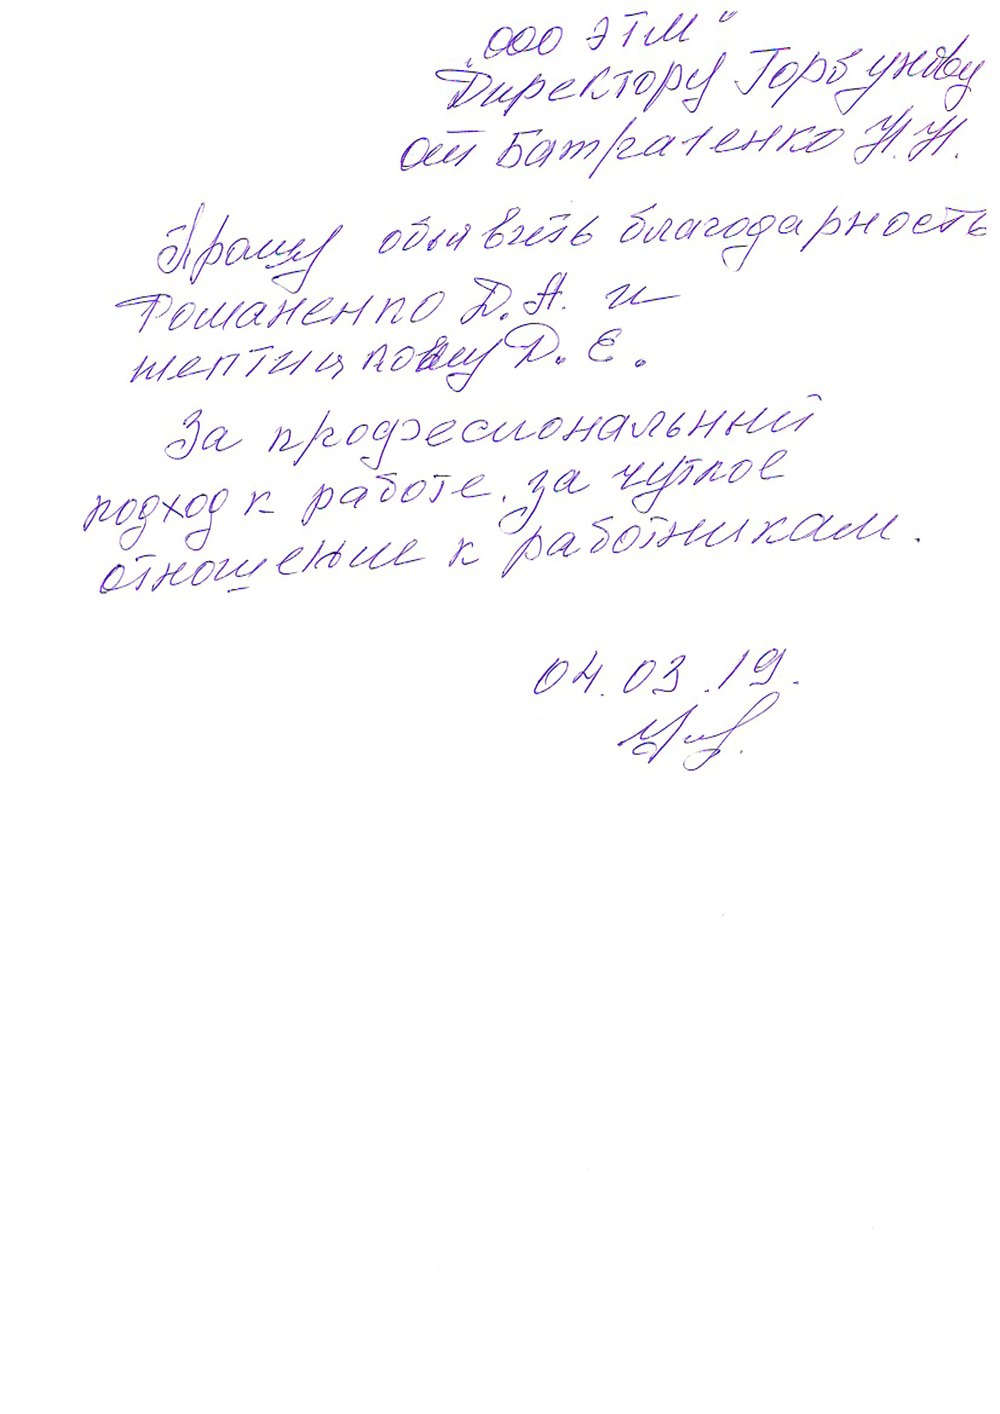 „ООО ЭТМ"
Директору Горбунову
от Батраченко Н.Н.
Прошу обьявить благодарность
Романенко Д.А. и
Шептицкому Д.Е.
За професиональный
подход к работе, за чуткое
отношение к работникам.
04.03.19.